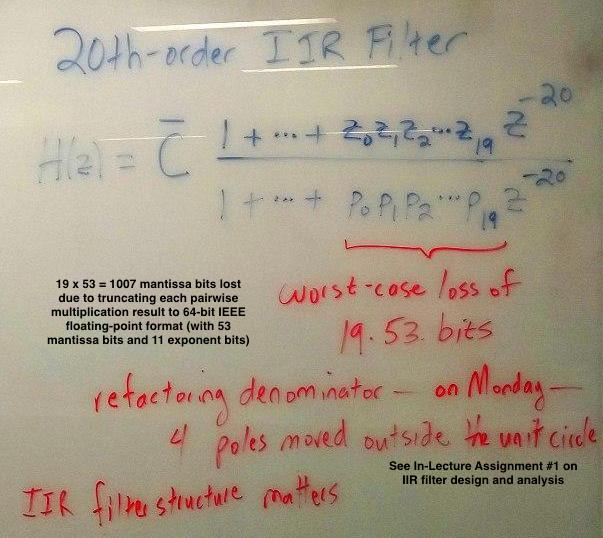 20th-order IIR Filter
H(z) = C̅ (1 + ... + z₀z₁z₂...z₁₉ z⁻²⁰) / (1 + ... + p₀p₁p₂...p₁₉ z⁻²⁰)
19 x 53 = 1007 mantissa bits lost
due to truncating each pairwise
multiplication result to 64-bit IEEE
floating-point format (with 53
mantissa bits and 11 exponent bits)
worst-case loss of
19.53 bits
refactoring denominator — on Monday —
4 poles moved outside the unit circle
See In-Lecture Assignment #1 on
IIR filter design and analysis
IIR filter structure matters